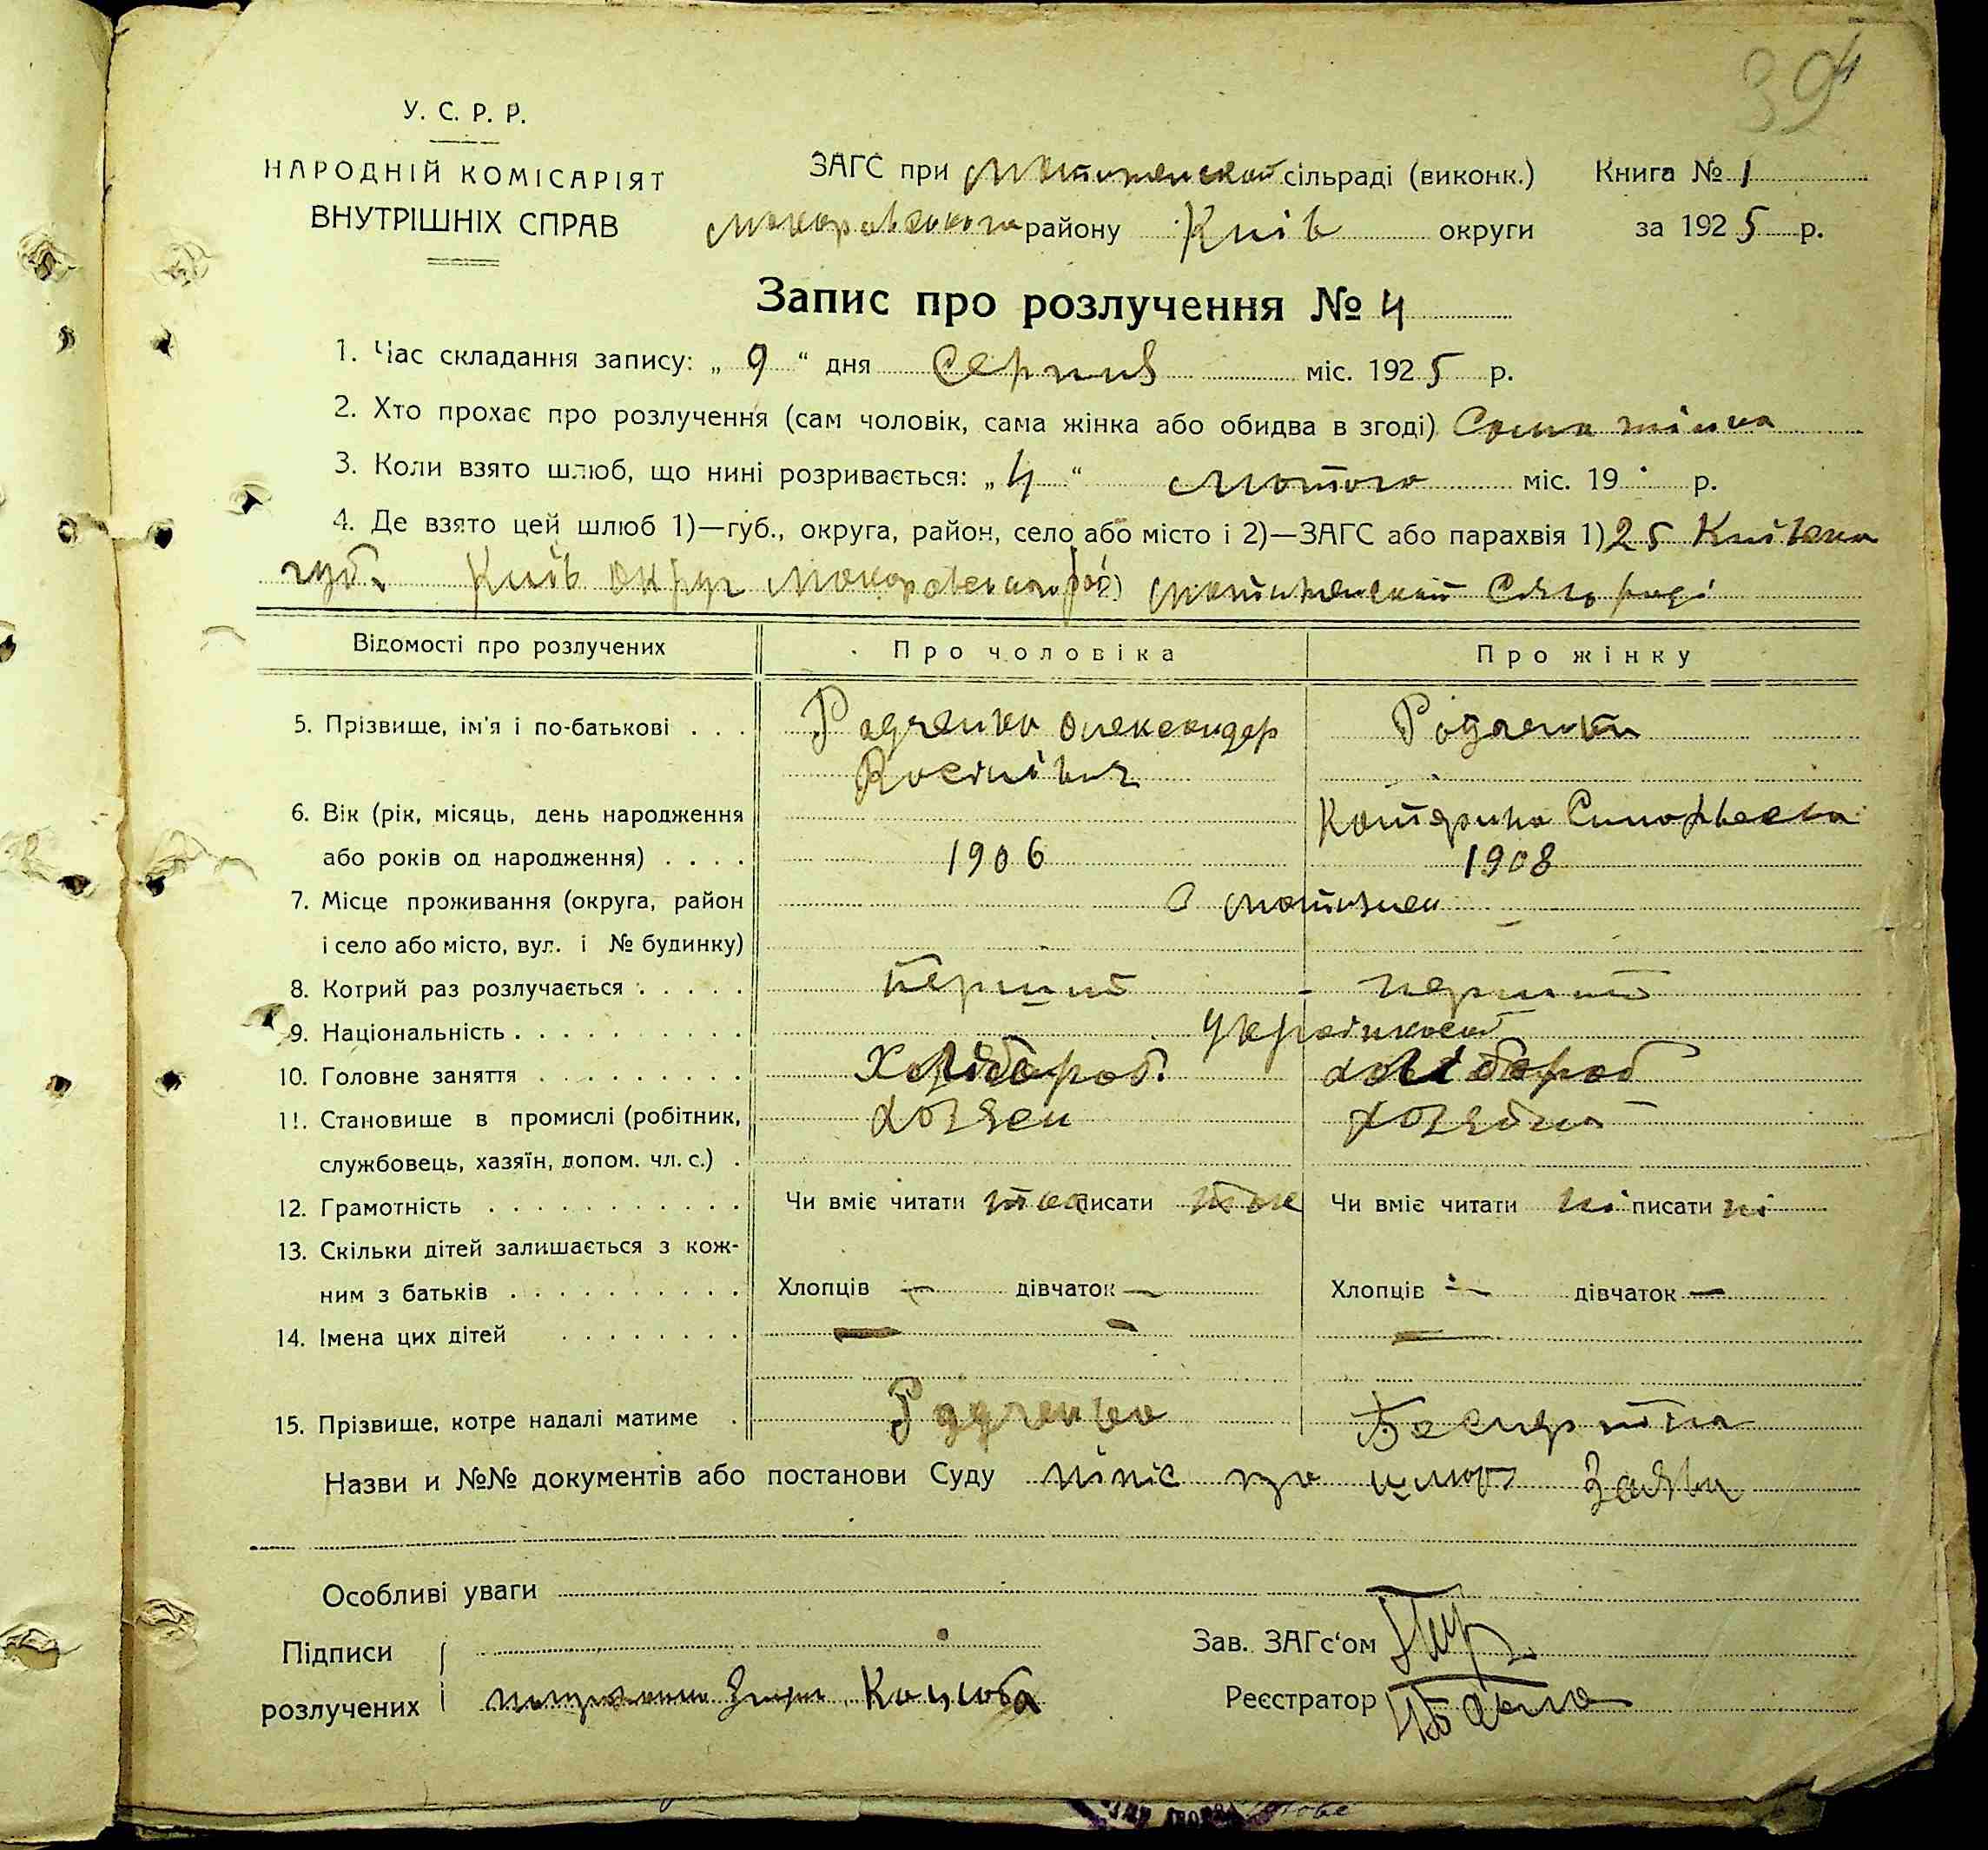 39
У. С. Р. Р.
НАРОДНІЙ КОМІСАРІЯТ
ВНУТРІШНІХ СПРАВ
ЗАГС при сільраді (виконк.) Книга № 1
району Київ округи за 1925 р.
Запис про розлучення № 4
1. Час складання запису: „ 9 “ дня Серпня міс. 1925 р.
2. Хто прохає про розлучення (сам чоловік, сама жінка або обидва в згоді) Сама жінка
3. Коли взято шлюб, що нині розривається: „ 4 “ Лютого міс. 19 р.
4. Де взято цей шлюб 1)—губ., округа, район, село або місто і 2)—ЗАГС або парахвія 1) 25 Київска
губ. Київ округ
Відомості про розлучених Про чоловіка Про жінку
5. Прізвище, ім'я і по-батькові . . . Радченко Олександер Радченко
6. Вік (рік, місяць, день народження Катерина
або років од народження) . . . . 1906 1908
7. Місце проживання (округа, район
і село або місто, вул. і № будинку)
8. Котрий раз розлучається . . . . . перший перший
9. Національність . . . . . . . . . .
10. Головне заняття . . . . . . . . . Хлібороб. хлібороб
11. Становище в промислі (робітник,
службовець, хазяїн, допом. чл. с.) .
12. Грамотність . . . . . . . . . . . Чи вміє читати так писати так Чи вміє читати ні писати ні
13. Скільки дітей залишається з кож-
ним з батьків . . . . . . . . . . Хлопців — дівчаток — Хлопців — дівчаток —
14. Імена цих дітей . . . . . . . . — — —
15. Прізвище, котре надалі матиме . Радченко
Назви и №№ документів або постанови Суду про шлюб Заява
Особливі уваги
Підписи Зав. ЗАГс‘ом
розлучених Коцюба Реєстратор